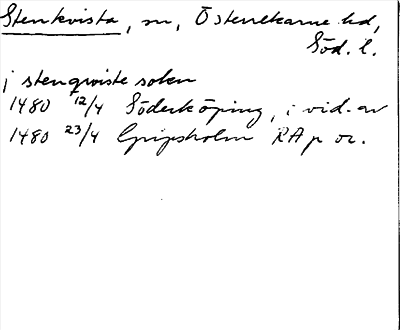 Stenkvista, sn, Österrekarne hd,
Söd. l.
j stenqwiste soken
1480 12/4 Söderköping, i vid. av
1480 23/4 Gripsholm RA p or.